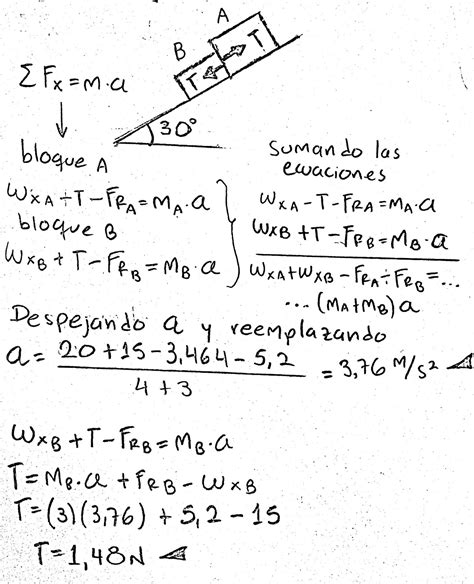 A
B
T
T
30°
ΣFx=m·a
bloque A
WxA-T-FRA=mA·a
bloque B
WxB+T-FRB=mB·a
Sumando las
ecuaciones
WxA-T-FRA=mA·a
WxB+T-FRB=mB·a
WxA+WxB-FRA-FRB=...
...(mA+mB)a
Despejando a y reemplazando
a= 20+15-3,464-5,2 = 3,76 m/s²
4+3
WxB+T-FRB=mB·a
T=mB·a+FRB-WxB
T=(3)(3,76)+5,2-15
T=1,48N